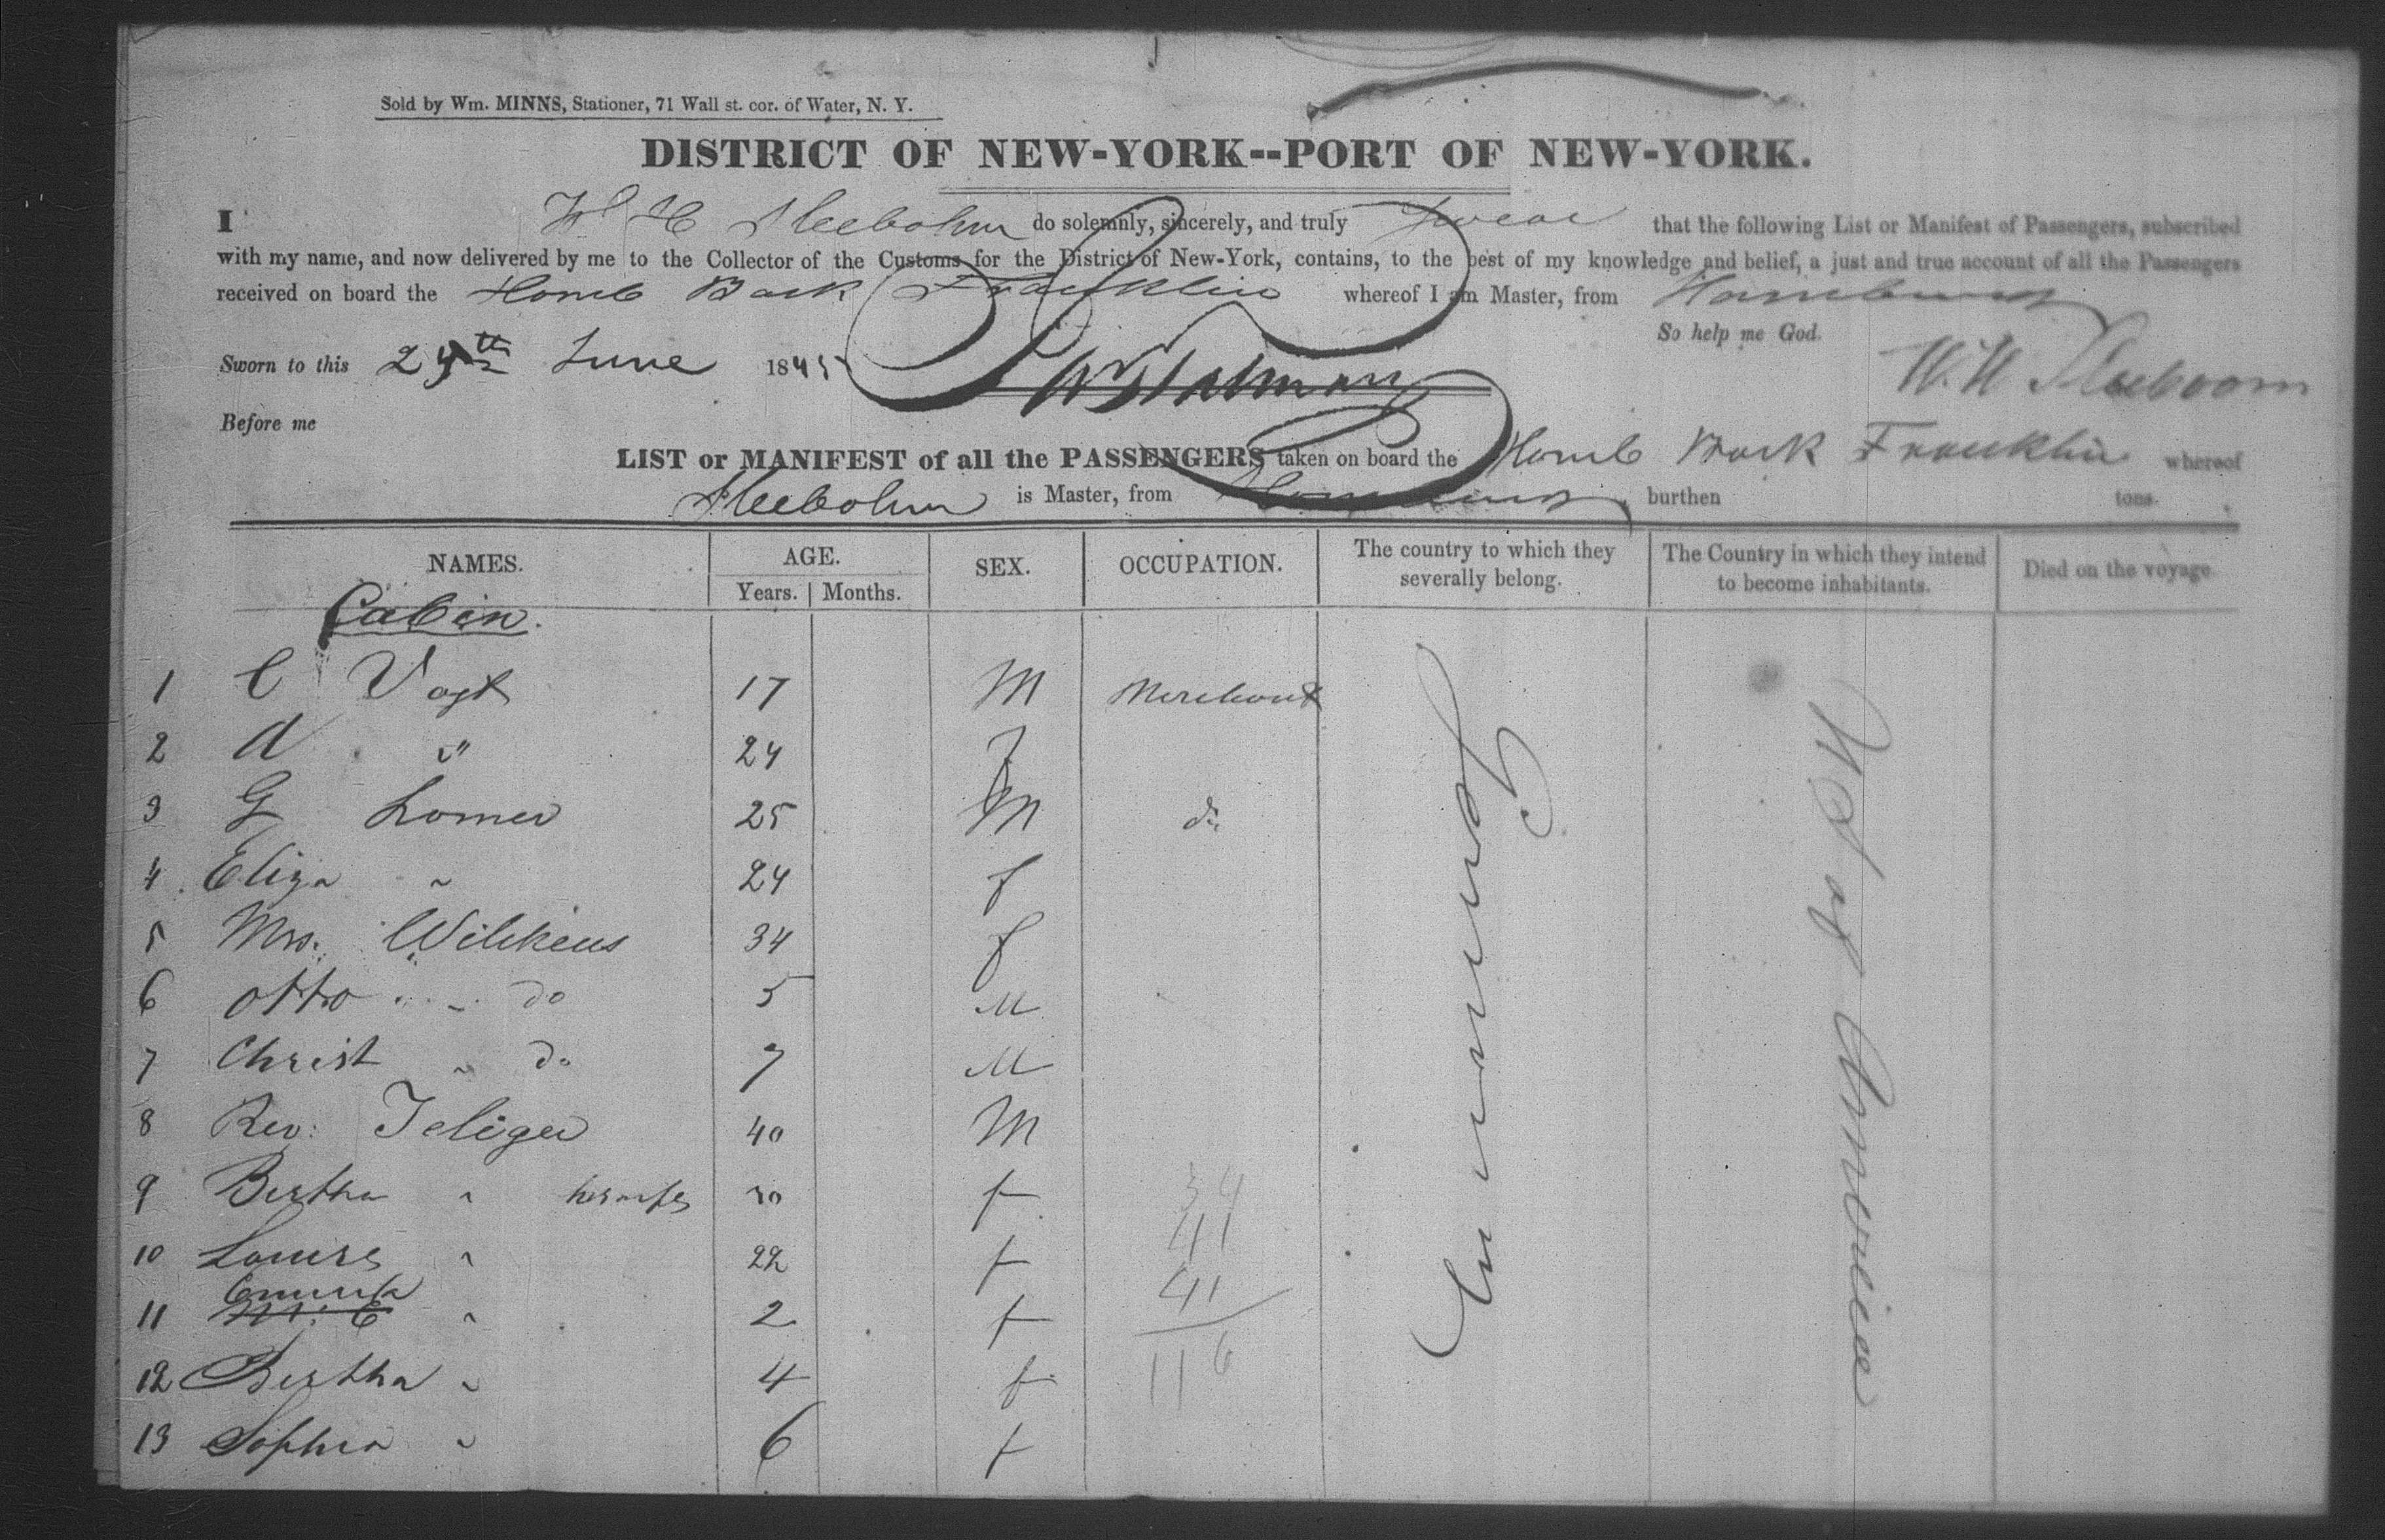 Sold by Wm. MINNS, Stationer, 71 Wall st. cor. of Water, N. Y.
DISTRICT OF NEW-YORK--PORT OF NEW-YORK.
I W H Sleebohm do solemnly, sincerely, and truly swear that the following List or Manifest of Passengers, subscribed
with my name, and now delivered by me to the Collector of the Customs for the District of New-York, contains, to the best of my knowledge and belief, a just and true account of all the Passengers
received on board the Hamb Bark Franklin whereof I am Master, from Hamburg
So help me God.
Sworn to this th June 1845
W. H Sleeboom
Before me
LIST or MANIFEST of all the PASSENGERS taken on board the Hamb Bark Franklin whereof
Sleebohm is Master, from Hamburg burthen tons.
NAMES. AGE. SEX. OCCUPATION. The country to which they severally belong. The Country in which they intend to become inhabitants. Died on the voyage.
Years. Months.
Cabin.
1 C Vogt 17 M Merchant
2 A " 24 f
3 G Lomer 25 M do
4 Eliza " 24 f
5 Mrs. Wilkens 34 f
6 Otto " do 5 M
7 Christ " do 7 M
8 Rev: Teliger 40 M
9 Bertha " his wife 30 f
10 Louise " 22 f
11 " 2 f
12 Bertha " 4 f
13 Sophia " 6 f
Germany
US of America
34
41
41
116